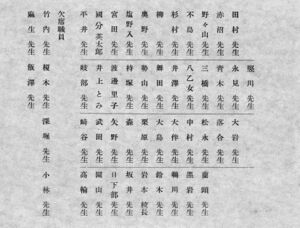 堅川先生
田村先生 永見先生 大岩先生
赤沼先生 青木先生 落合先生
野々山先生 三橋先生 松永先生
不島先生 八乙女先生 中村先生 黒岩先生
杉村先生 井澤先生 大伴先生 鵜川先生
柳先生 舞田先生 大島先生 鈴木先生
奥野先生 勢山先生 栗原先生 岩本校長
塩野入先生 持塚先生 森先生 坂井先生
宮田先生 渡邊里子先生 矢野先生 日下部先生
國分英太郎先生 井上とみ先生 武田先生 園山先生
平井先生 岐部先生 崎谷先生 高輪先生
欠席職員
竹内先生 榎木先生 深堀先生 小林先生
麻生先生 飯澤先生